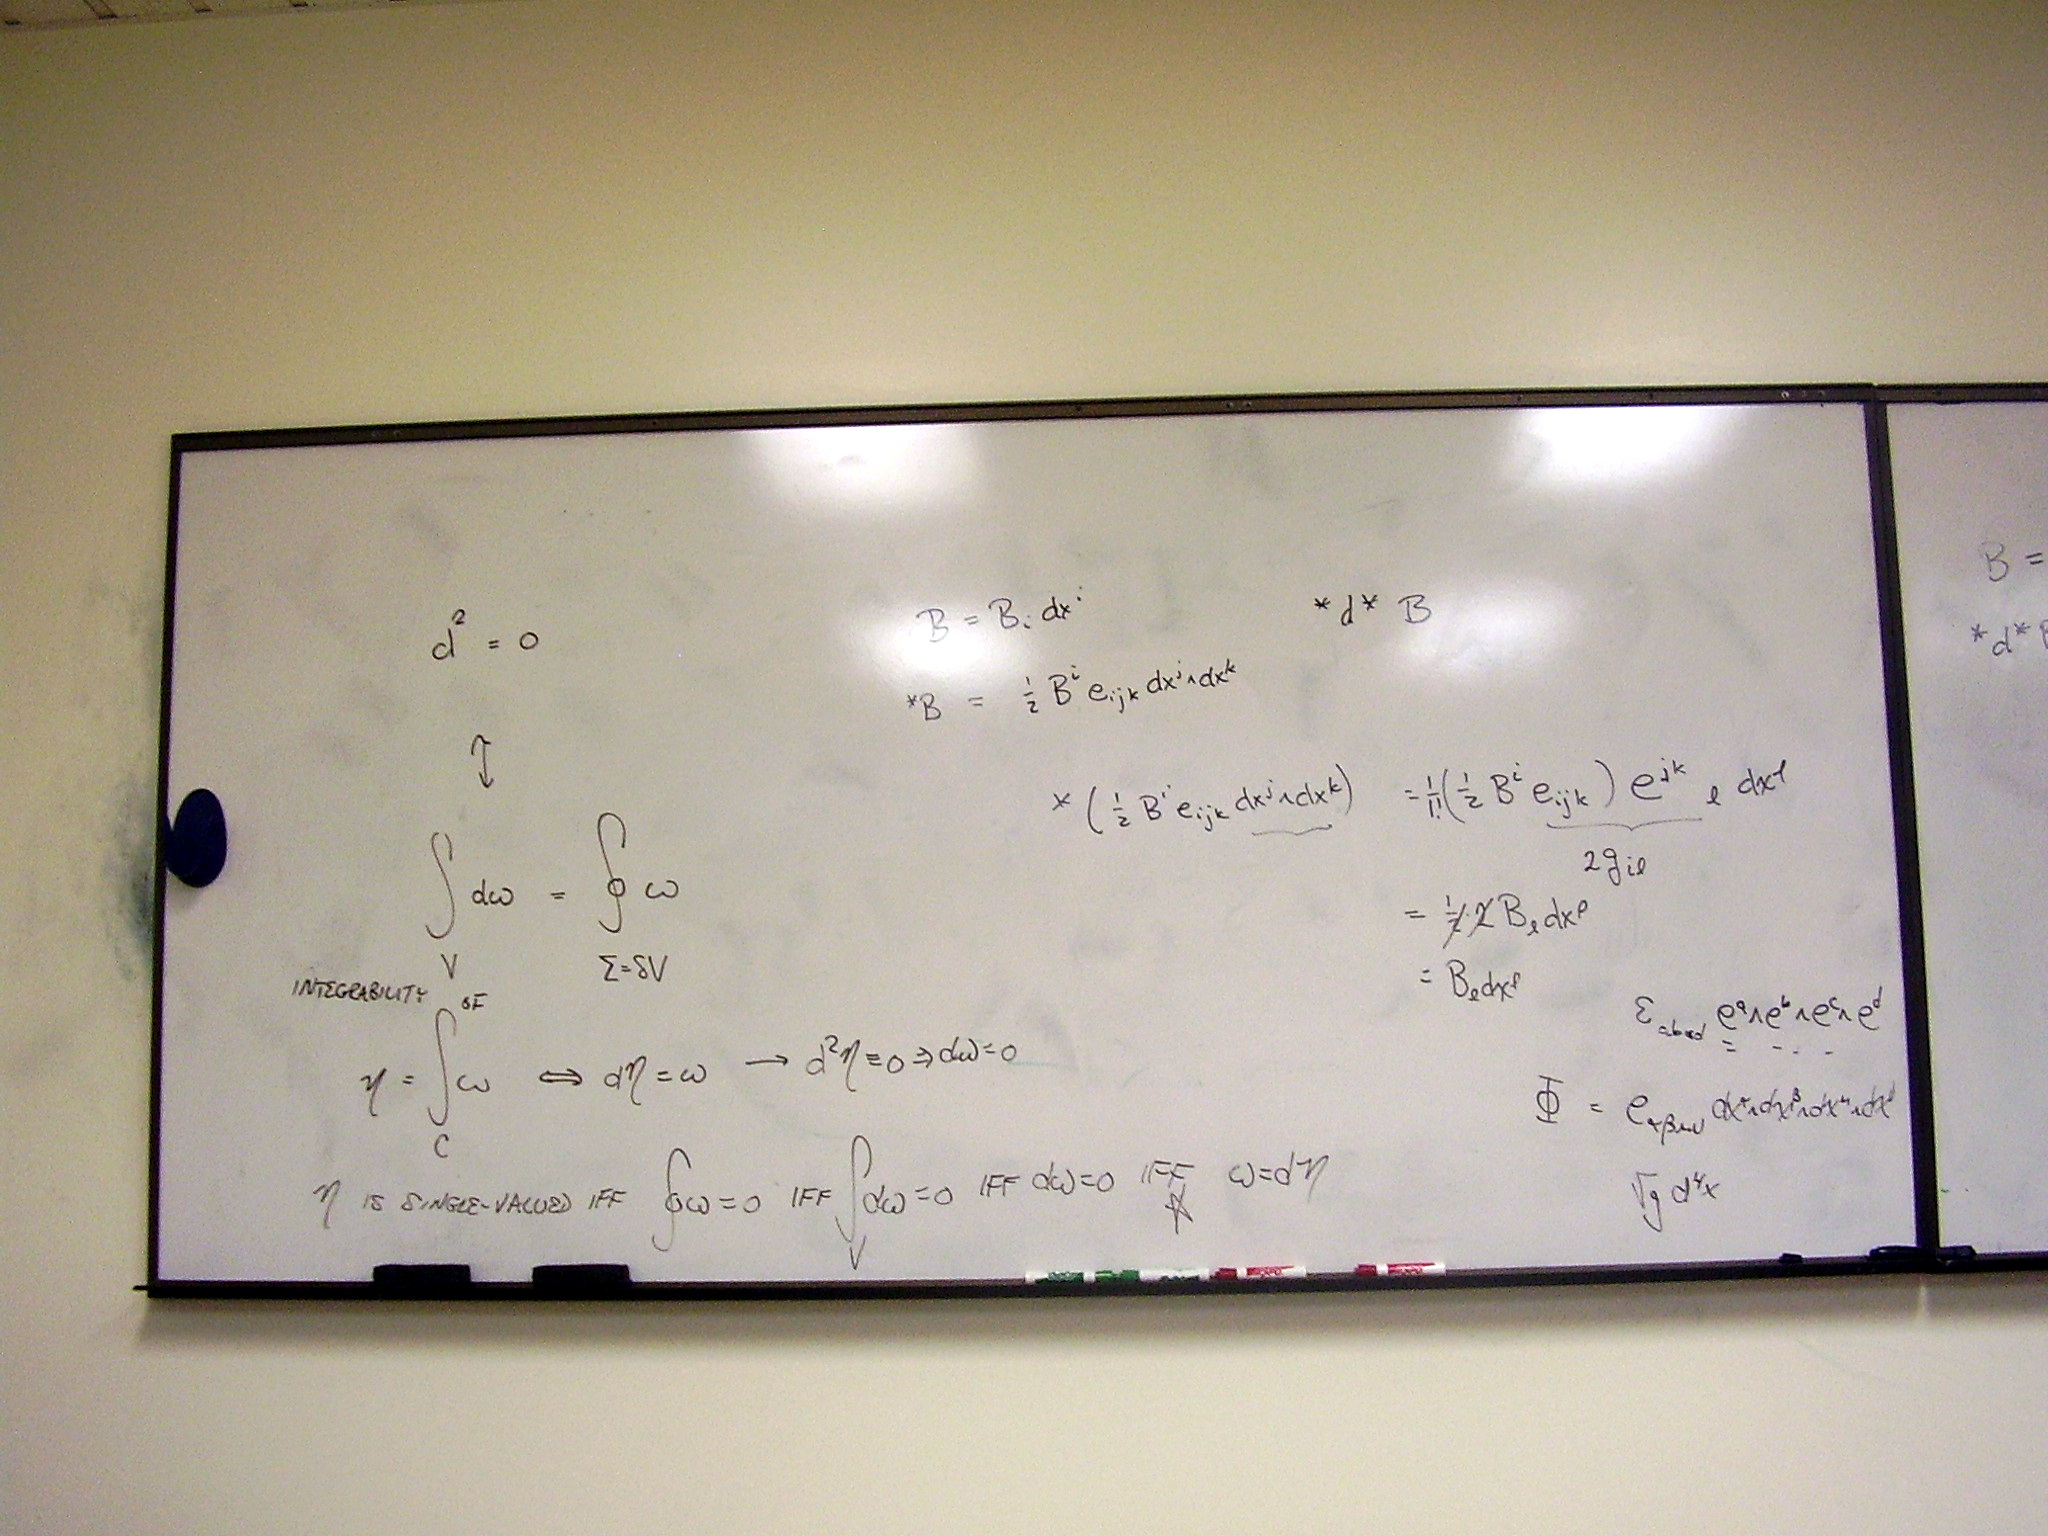 d² = 0
↕
∫ dω = ∮ ω
V Σ=δV
INTEGRABILITY
η = ∫ ω ⟺ dη = ω → d²η ≡ 0 ⇒ dω = 0
C
η IS SINGLE-VALUED IFF ∮ω = 0 IFF ∫ dω = 0 IFF dω = 0 IFF ω = dη
V
B = Bᵢ dxⁱ
*d* B
*B = ½ Bⁱ eᵢⱼₖ dxʲ∧dxᵏ
* (½ Bⁱ eᵢⱼₖ dxʲ∧dxᵏ) = 1/1! (½ Bⁱ eᵢⱼₖ) eʲᵏₗ dxˡ
2gᵢₗ
= ½·2 Bₗ dxˡ
= Bₗ dxˡ
ε_abcd eᵃ∧eᵇ∧eᶜ∧eᵈ
= - - -
Φ = e_αβμν dx^α∧dx^β∧dx^μ∧dx^ν
√g d⁴x
B =
*d* B